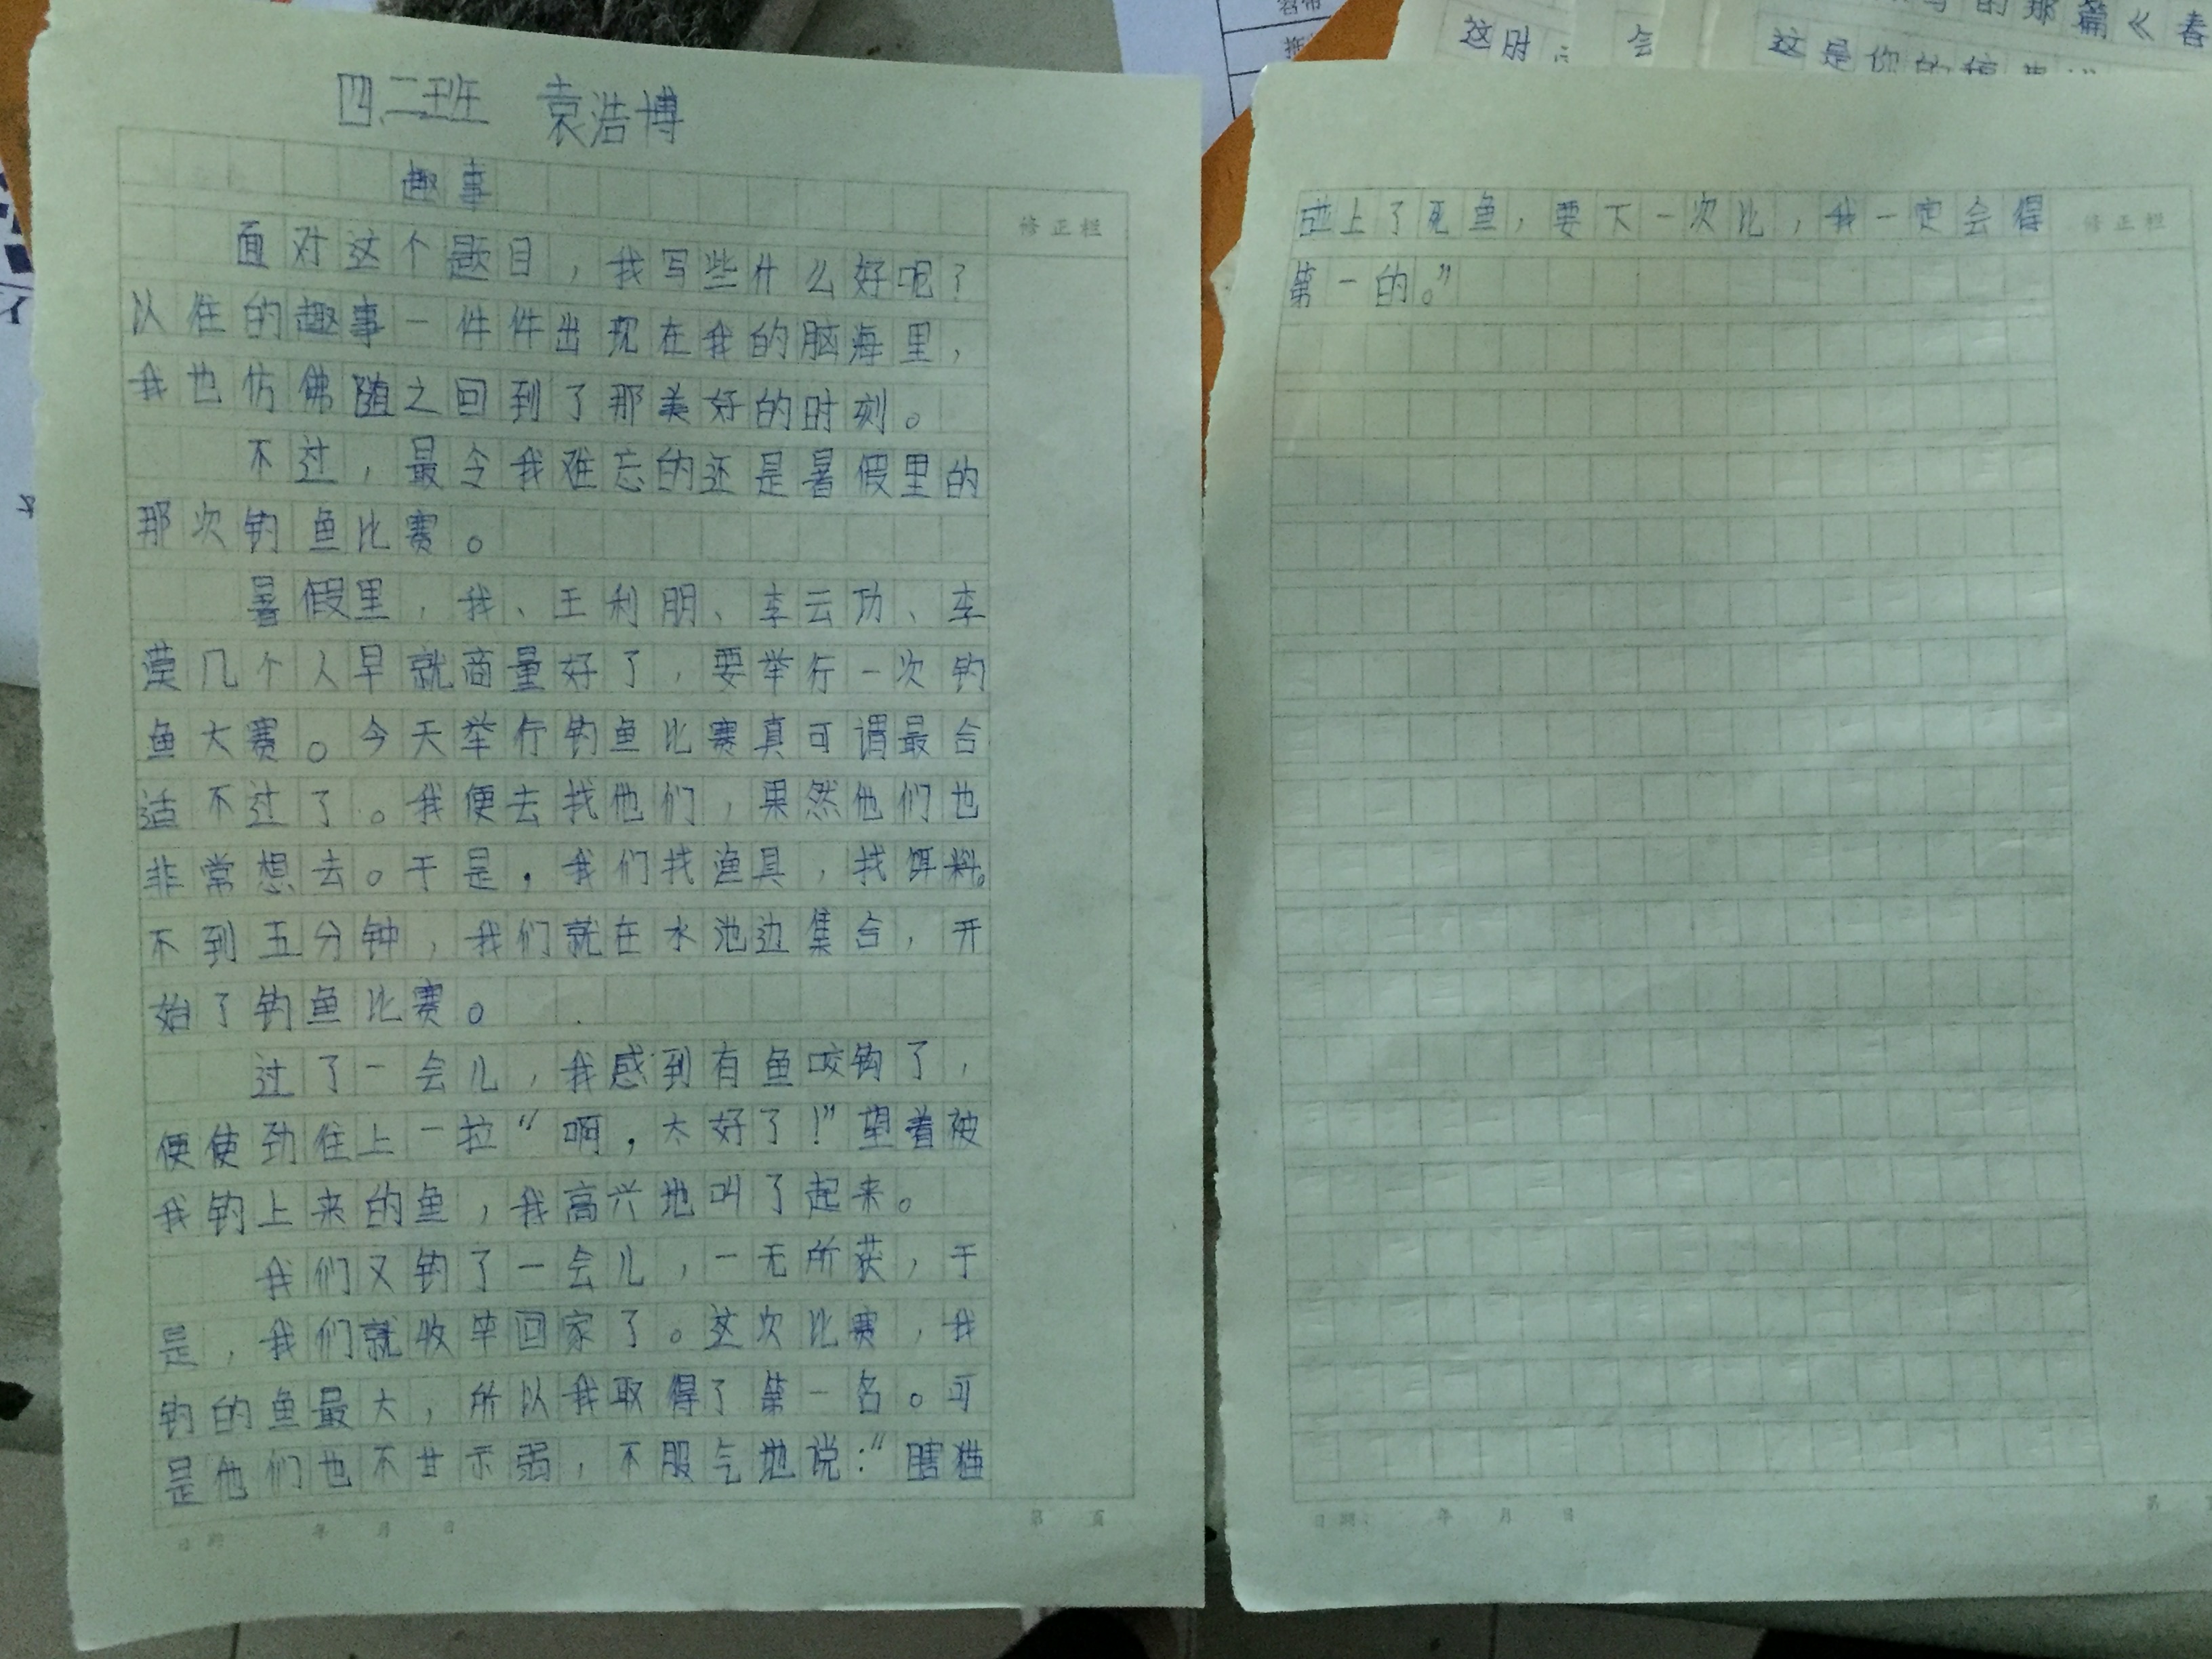 四.二班 袁浩博
趣事
面对这个题目，我写些什么好呢？
以住的趣事一件件出现在我的脑海里，
我也仿佛随之回到了那美好的时刻。
不过，最令我难忘的还是暑假里的
那次钓鱼比赛。
暑假里，我、王利朋、李云功、李
漠几个人早就商量好了，要举行一次钓
鱼大赛。今天举行钓鱼比赛真可谓最合
适不过了。我便去找他们，果然他们也
非常想去。于是，我们找渔具，找饵料。
不到五分钟，我们就在水池边集合，开
始了钓鱼比赛。
过了一会儿，我感到有鱼咬钩了，
便使劲住上一拉“啊，太好了！”望着被
我钓上来的鱼，我高兴地叫了起来。
我们又钓了一会儿，一无所获，于
是，我们就收竿回家了。这次比赛，我
钓的鱼最大，所以我取得了第一名。可
是他们也不甘示弱，不服气地说：“瞎猫
日期 年 月 日
第 页
修正栏
碰上了死鱼，要下一次比，我一定会得
第一的。”
修正栏
日期： 年 月 日
第
这时 会
这是你的
的那篇《春